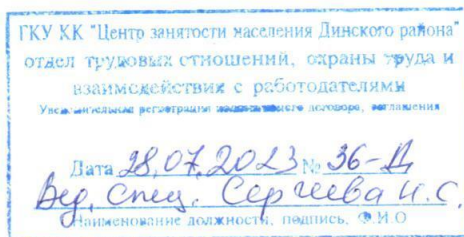 ГКУ КК "Центр занятости населения Динского района"
отдел трудовых отношений, охраны труда и
взаимодействия с работодателями
Уведомительная регистрация коллективного договора, соглашения
Дата 28.07.2023 № 36-Д
Вед. спец. Сергеева И.С.
Наименование должности, подпись, Ф.И.О